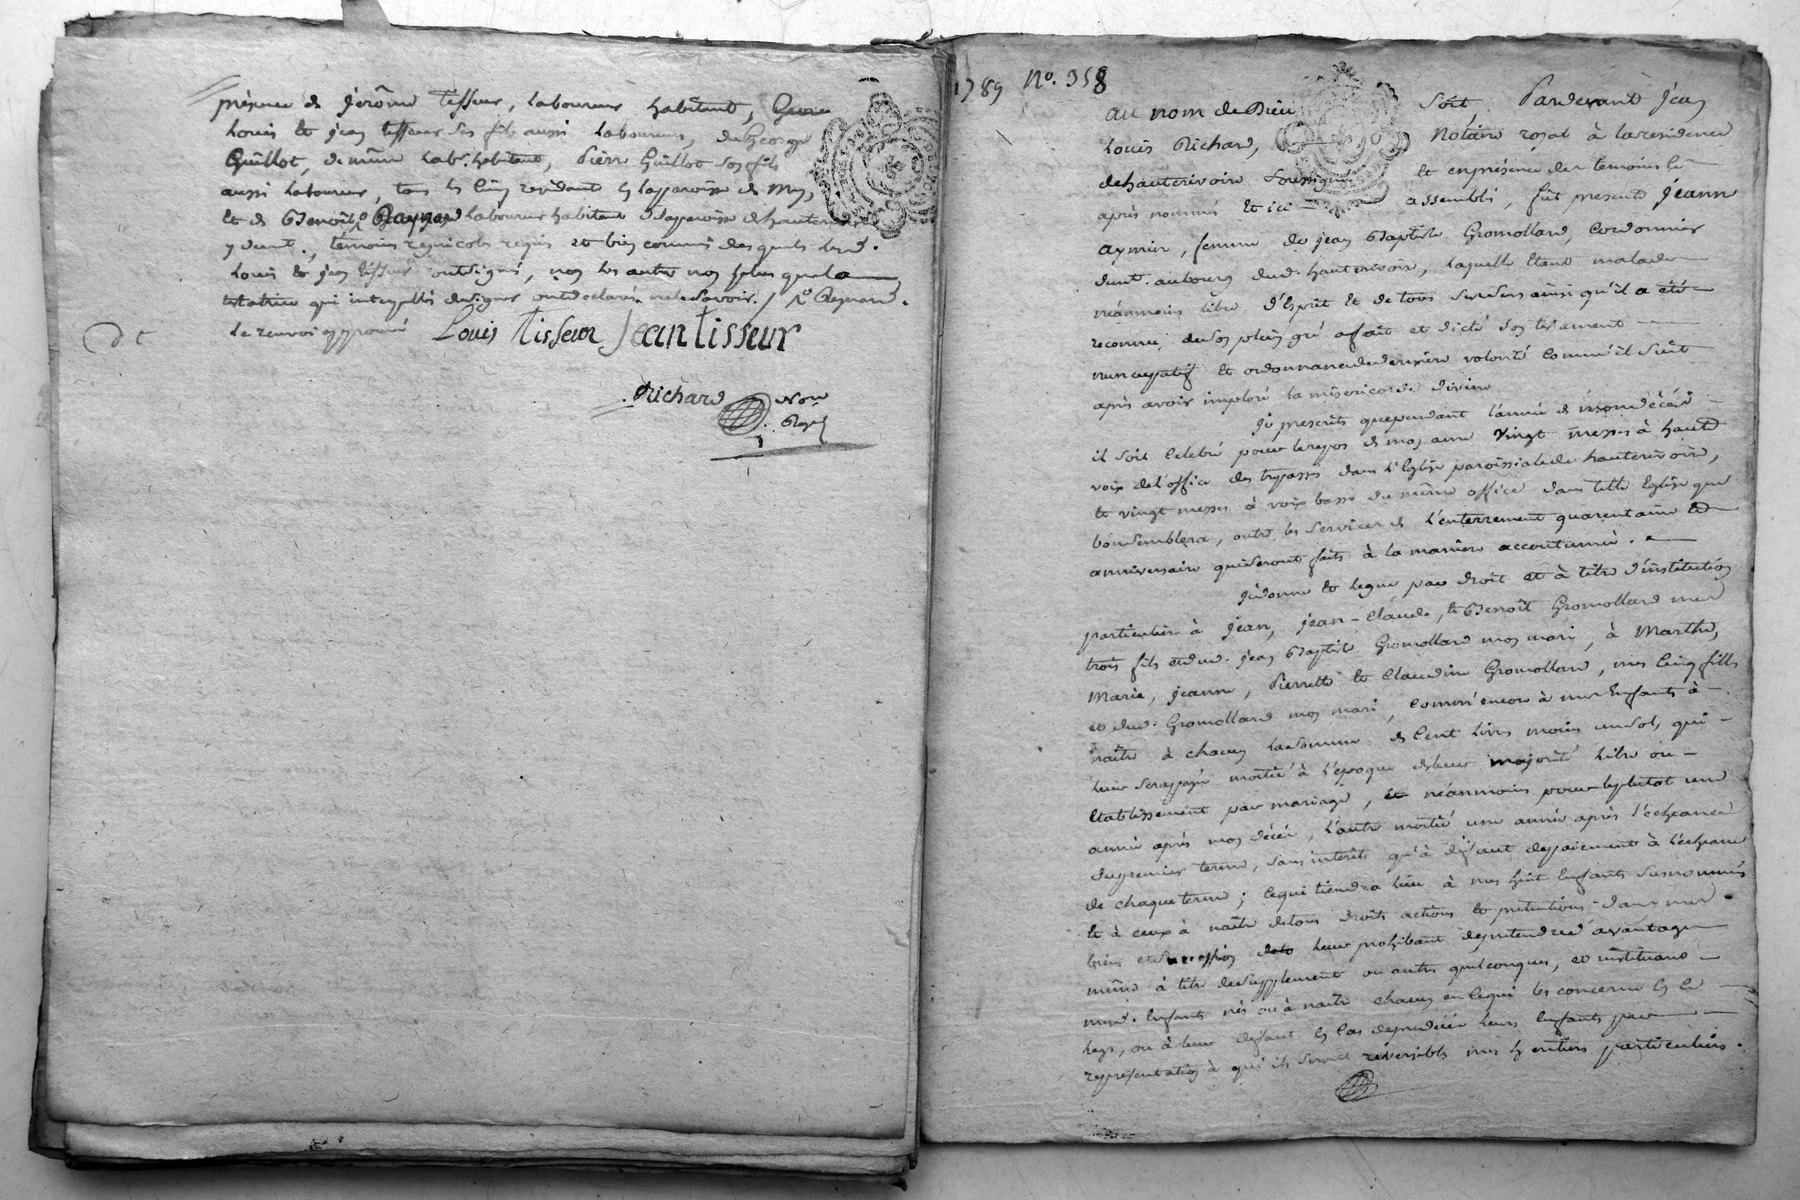 présence de jérôme tisseur, laboureur habitant,
Louis et jean tisseur ses fils aussi laboureurs, de George
Guillot, de même lab.r habitant, pierre Guillot son fils
aussi laboureur, tous les cinq residant en la parroisse de Mey,
et de Benoît Raynard laboureur habitant de la parroisse de hauterivoire
y dem.t, temoins regnicoles requis et bien connus desquels lesd.
Louis et jean tisseur ont signé, non les autres non plus que la
testatrice qui interpellés de signer ont déclaré ne le savoir. /
le renvoi approuvé
Louis tisseur Jean tisseur
Richard No.re
Royal
1789 N.o 358
au nom de Dieu soit Pardevant jean
Louis Richard, Notaire royal à la residence
de hauterivoire soussigné et en présence des temoins ci
après nommés et ici assemblés, fut presente jeanne
aymier, femme de jean Baptiste Gromollard, Cordonnier
dem.t au bourg dud. hauterivoire, laquelle étant malade
néanmoins libre d'esprit et de tous ses sens ainsi qu'il a été
reconnu, de son plein gré a fait et dicté son testament
nuncupatif et ordonnance de derniere volonté comme il suit
après avoir imploré la misericorde divine
je prescrits que pendant l'année de mon décès
il soit célébré pour le repos de mon ame vingt messes à haute
voix de l'office des trepassés dans l'Eglise paroissiale de hauterivoire,
et vingt messes à voix basse du même office dans telle Eglise que
bon semblera, outre les services de l'enterrement quarantaine et
anniversaire qui seront faits à la maniere accoutumée.
je donne et legue par droit et à titre d'institution
particuliere à jean, jean-Claude, et Benoît Gromollard mes
trois fils et dud. jean Baptiste Gromollard mon mari, à Marthe,
Marie, jeanne, Pierrette et Claudine Gromollard, mes cinq filles
et dud. Gromollard mon mari, comm'encore à mes Enfants à
naître à chacun la somme de Cent livres moins un sol, qui
leur sera payée moitié à l'époque de leur majorité libre ou
etablissement par mariage, et néanmoins pour le plutot une
année après mon décès, l'autre moitié une année après l'écheance
du premier terme, sans interêts qu'à défaut de paiement à l'écheance
de chaque terme; ce qui tiendra lieu à mes huit Enfants susnommés
et à ceux à naître de tous droits actions et prétentions dans mes
biens et succession leur prohibant de prétendre davantage
même à titre de supplement ou autres quelconques, et instituant
mesd. Enfants nés ou à naître chacun en ce qui les concerne en ce
legs, ou à leur defaut en cas de prédécès leurs Enfants par
representation à qui ils seront reversibles mes heritiers particuliers.